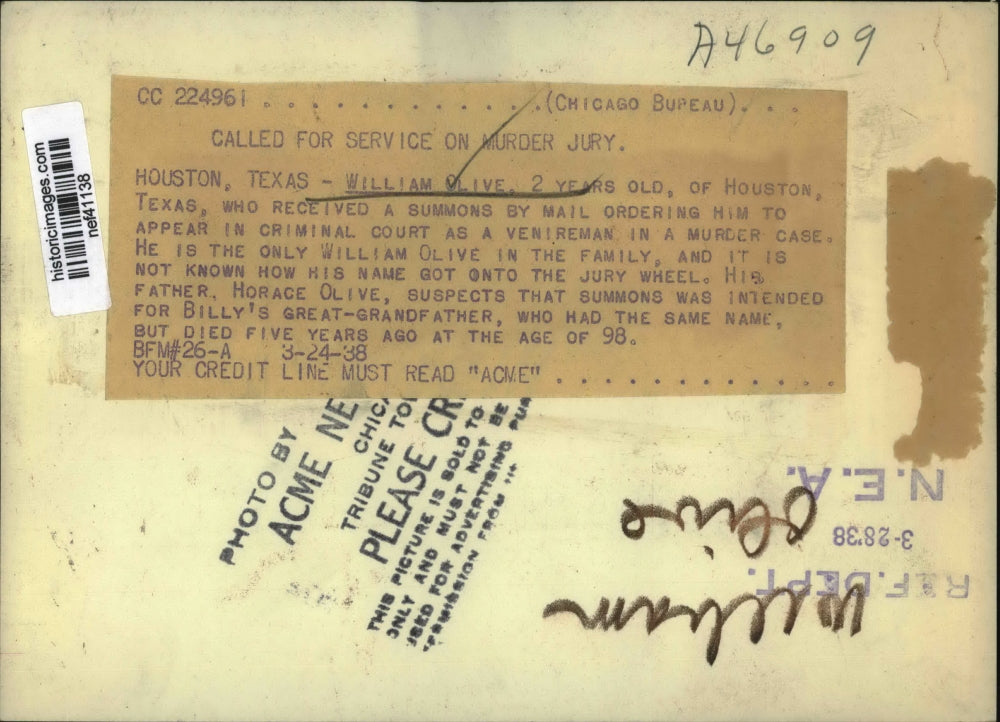 A46909
CC 224961 . . . . . . . . . . . . .(CHICAGO BUREAU). . .
CALLED FOR SERVICE ON MURDER JURY.
HOUSTON, TEXAS - WILLIAM OLIVE, 2 YEARS OLD, OF HOUSTON,
TEXAS, WHO RECEIVED A SUMMONS BY MAIL ORDERING HIM TO
APPEAR IN CRIMINAL COURT AS A VENIREMAN IN A MURDER CASE.
HE IS THE ONLY WILLIAM OLIVE IN THE FAMILY, AND IT IS
NOT KNOWN HOW HIS NAME GOT ONTO THE JURY WHEEL. HIS
FATHER, HORACE OLIVE, SUSPECTS THAT SUMMONS WAS INTENDED
FOR BILLY'S GREAT-GRANDFATHER, WHO HAD THE SAME NAME,
BUT DIED FIVE YEARS AGO AT THE AGE OF 98.
BFM#26-A 3-24-38
YOUR CREDIT LINE MUST READ "ACME" . . . . . . . . . . . . .
historicimages.com
nef41138
PHOTO BY
ACME NE
CHICA
TRIBUNE TO
PLEASE CR
THIS PICTURE IS SOLD TO
ONLY AND MUST NOT BE
USED FOR ADVERTISING PUR
PERMISSION FROM
N.E.A.
3-28'38
REF. DEPT.
William
Olive